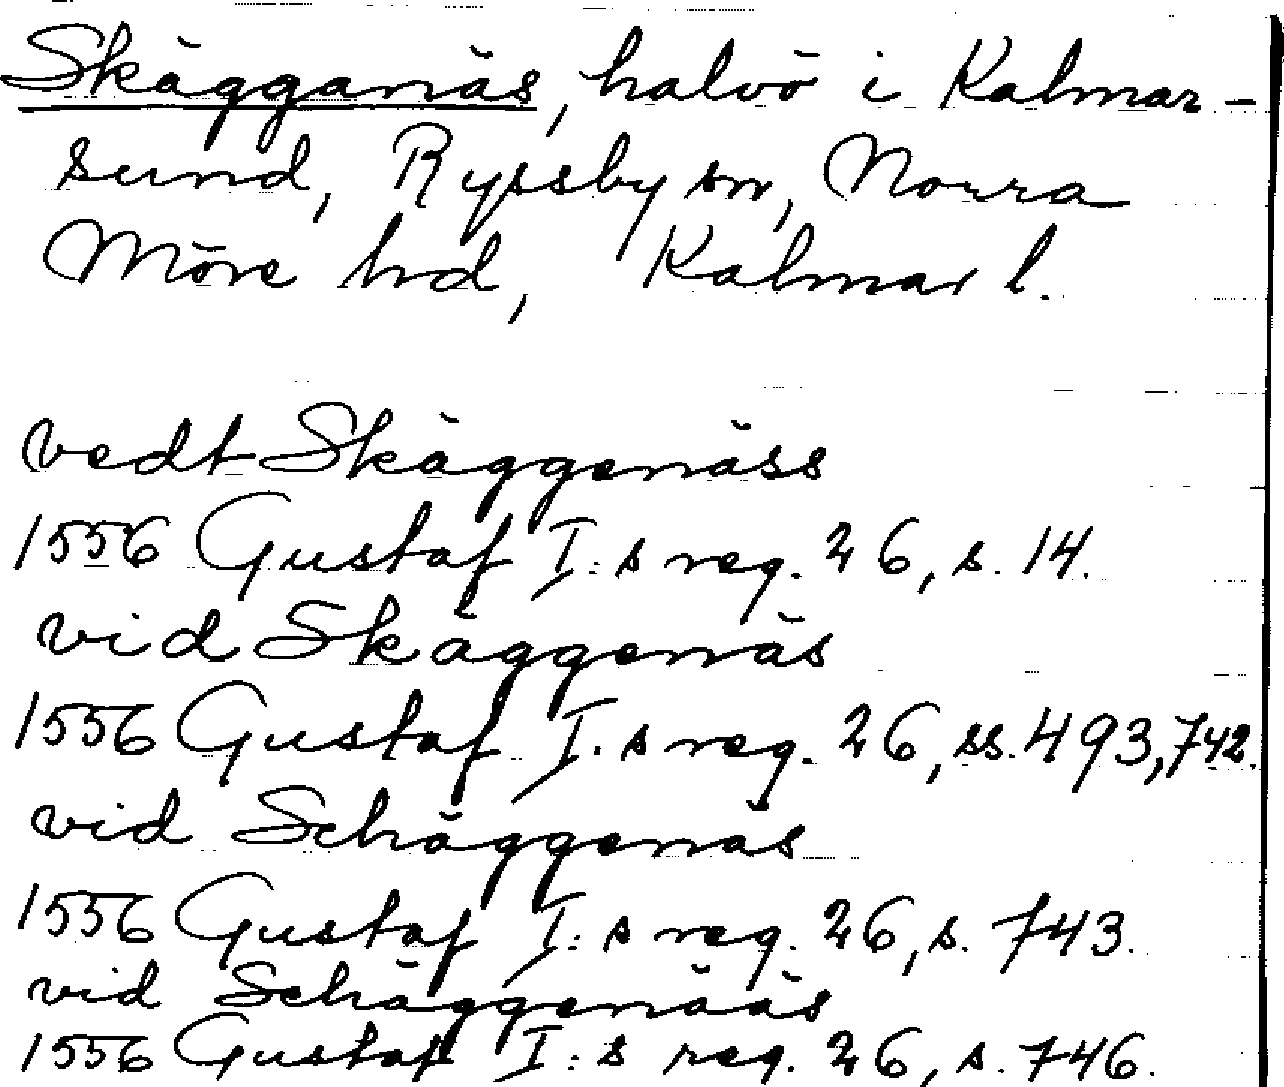 Skägganäs, halvö i Kalmar-
sund, Ryssby sn, Norra
Möre hd, Kalmar l.
vedt Skäggenäss
1556 Gustaf I:s reg. 26, s. 14.
vid Skäggenäs
1556 Gustaf I:s reg. 26, ss. 493, 742.
vid Schäggenäs
1556 Gustaf I:s reg. 26, s. 743.
vid Schäggenääs
1556 Gustaf I:s reg. 26, s. 746.